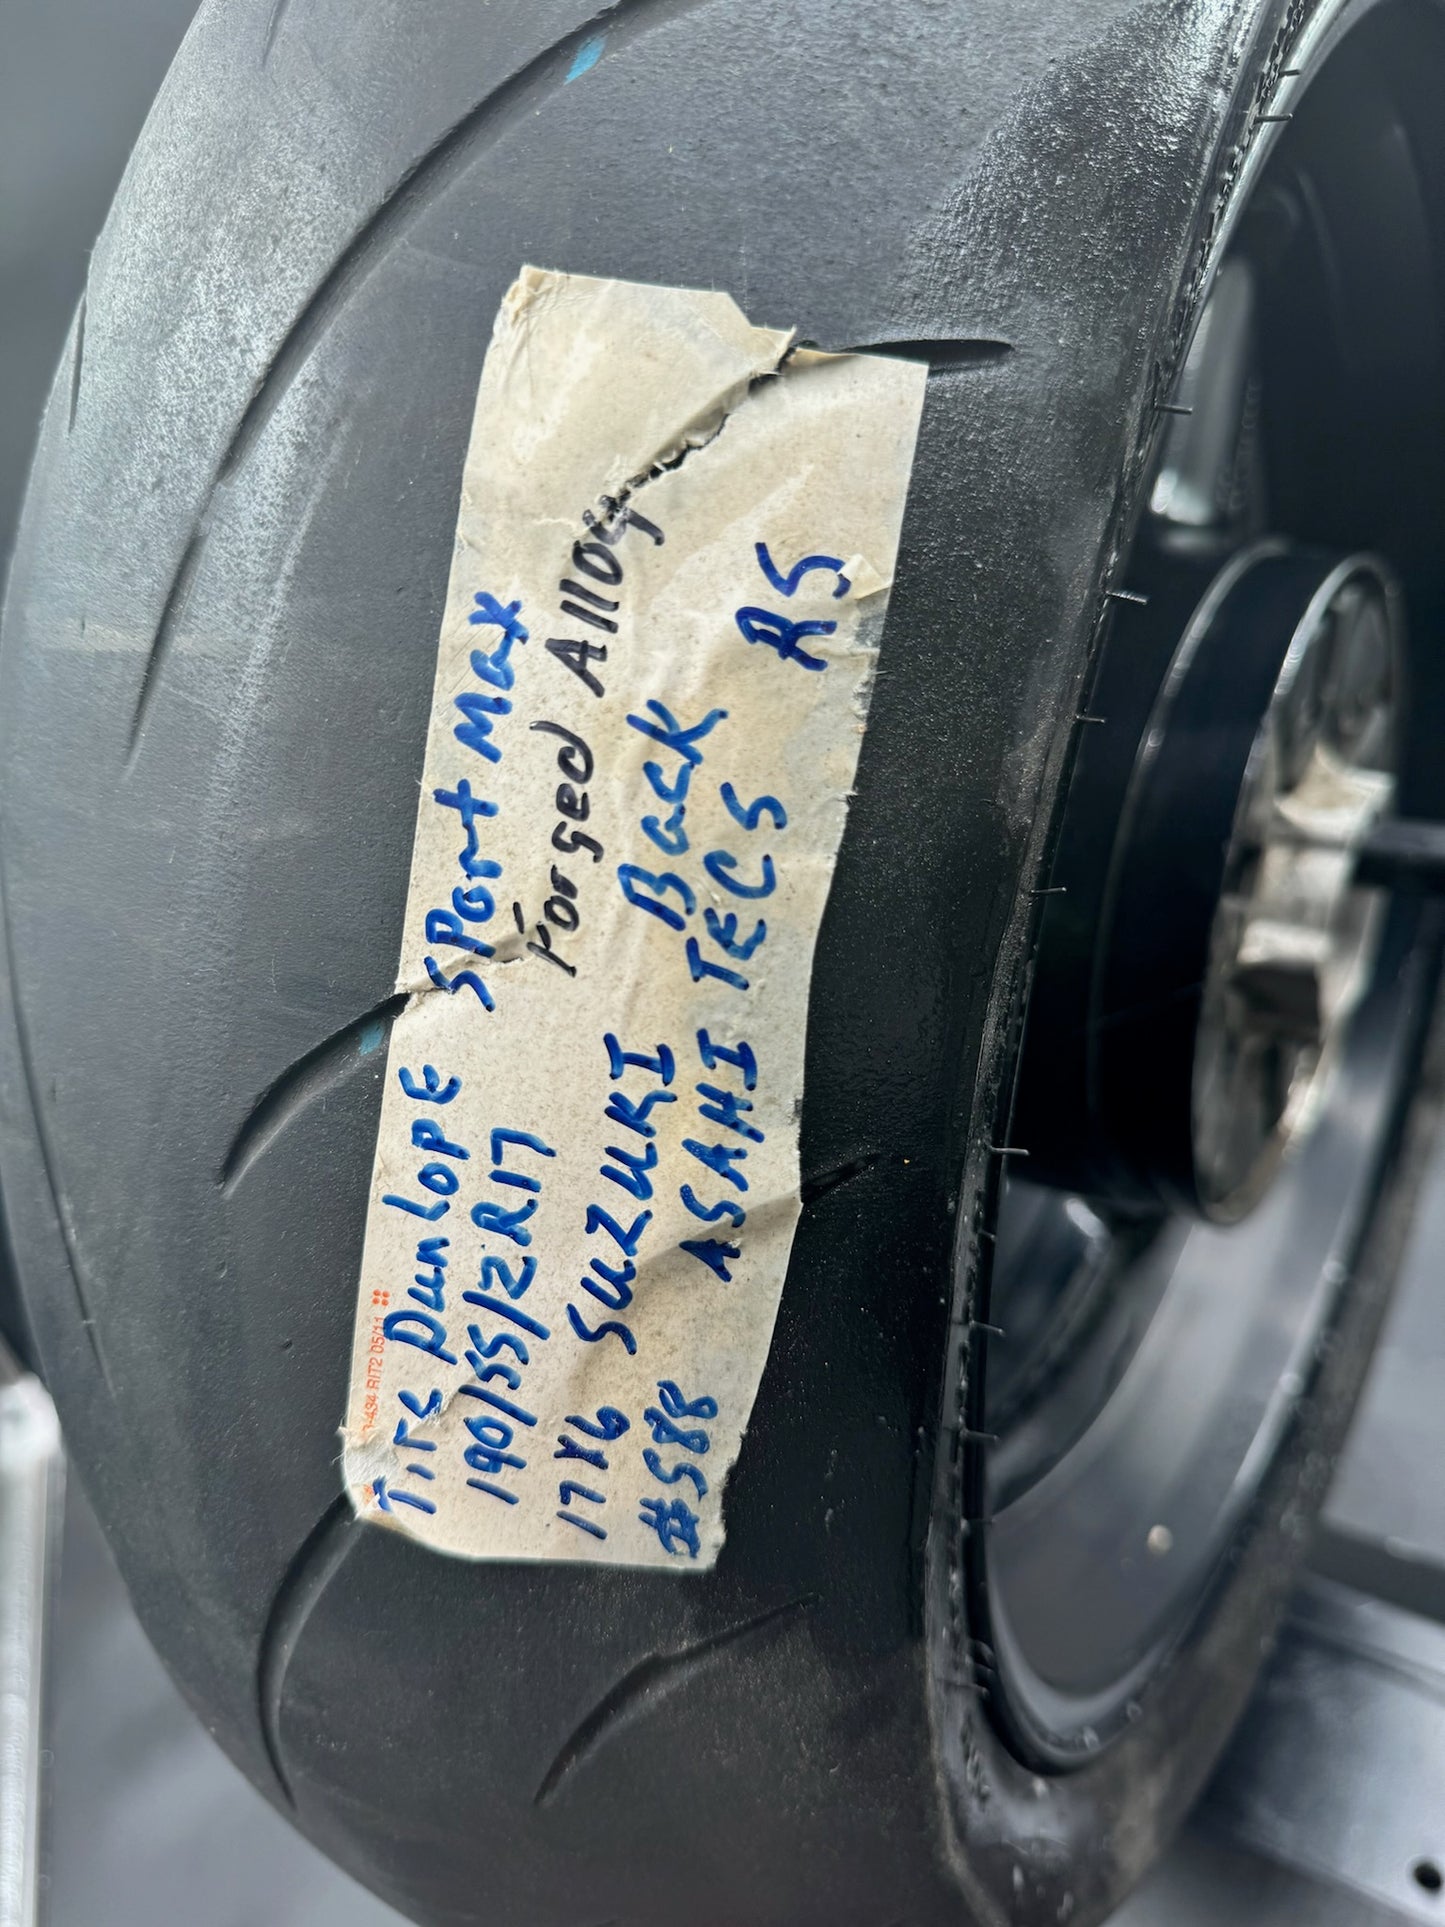 434 RIT2 05/11
Tire Dunlope Sport Max
190/55/2R17 Forged Alloy
17X6 SUZUKI Back
#588 ASAHI TECS RS